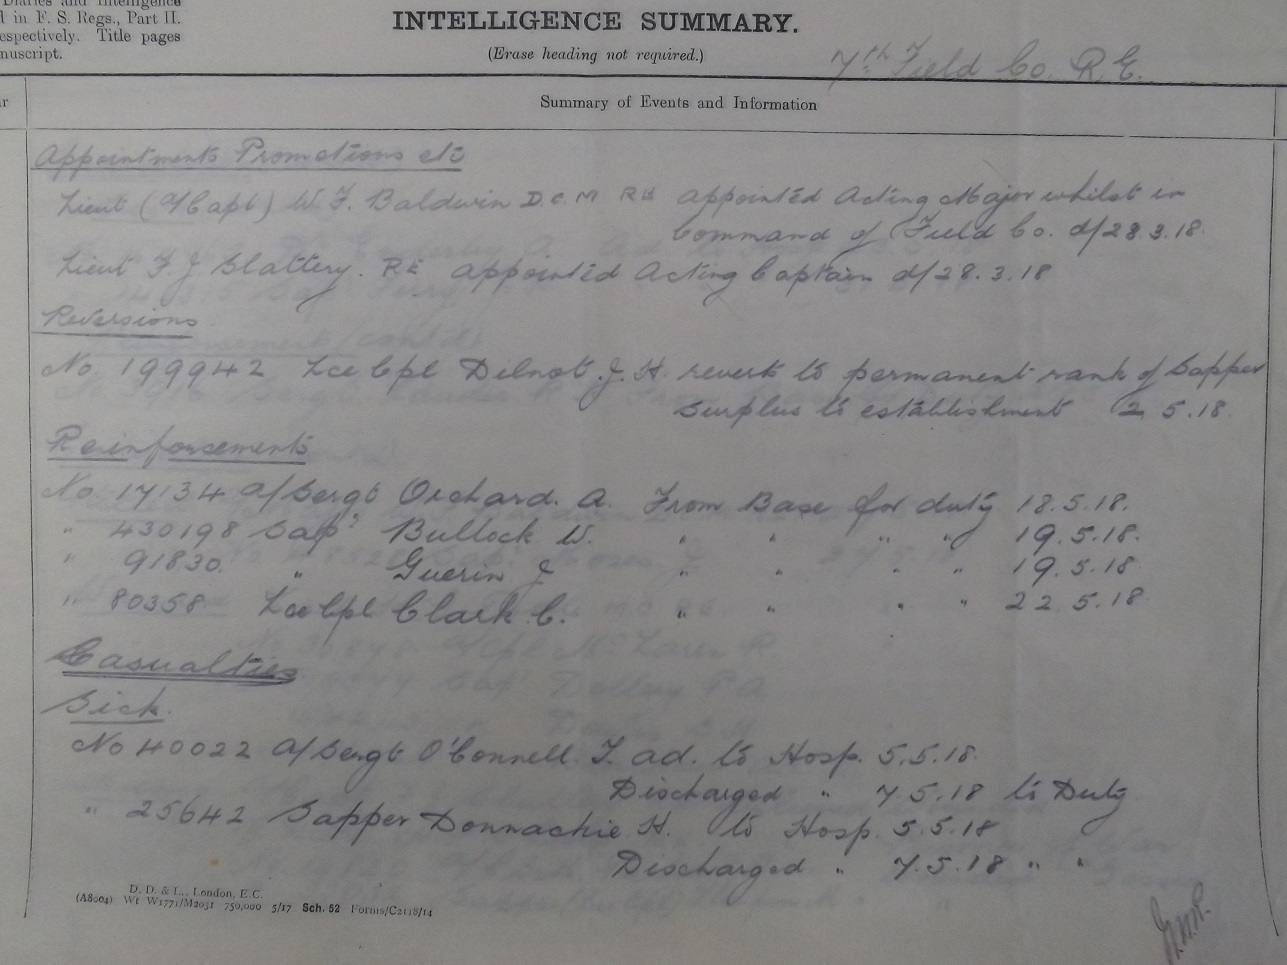 Diaries and Intelligence
d in F. S. Regs., Part II.
espectively. Title pages
nuscript.
INTELLIGENCE SUMMARY.
(Erase heading not required.)
7th Field Co. R.E.
Summary of Events and Information
Appointments Promotions etc
Lieut (A/Capt) W. F. Baldwin D.C.M RE appointed Acting Major whilst in
Command of Field Co. d/28.3.18.
Lieut F. J. Slattery. RE appointed Acting Captain d/28.3.18
Reversions
No. 199942 Lce Cpl Dilnot J. H. reverts to permanent rank of Sapper
Surplus to establishment 2 5.18.
Reinforcements
No 17134 A/Sergt Orchard. A. From Base for duty 18.5.18.
" 430198 Sapr Bullock W. " " " " 19.5.18.
" 91830. " Guerin J " " " " 19.5.18
" 80358 Lce Cpl Clark C. " " " " 22.5.18
Casualties
Sick.
No 40022 A/Sergt O'Connell. T. ad. to Hosp. 5.5.18.
Discharged " 7.5.18 to Duty
" 25642 Sapper Donnachie H. to Hosp. 5.5.18
Discharged " 7.5.18 " "
D. D. & L., London, E.C.
(A8004) Wt W1771/M2031 750,000 5/17 Sch. 52 Forms/C2118/14